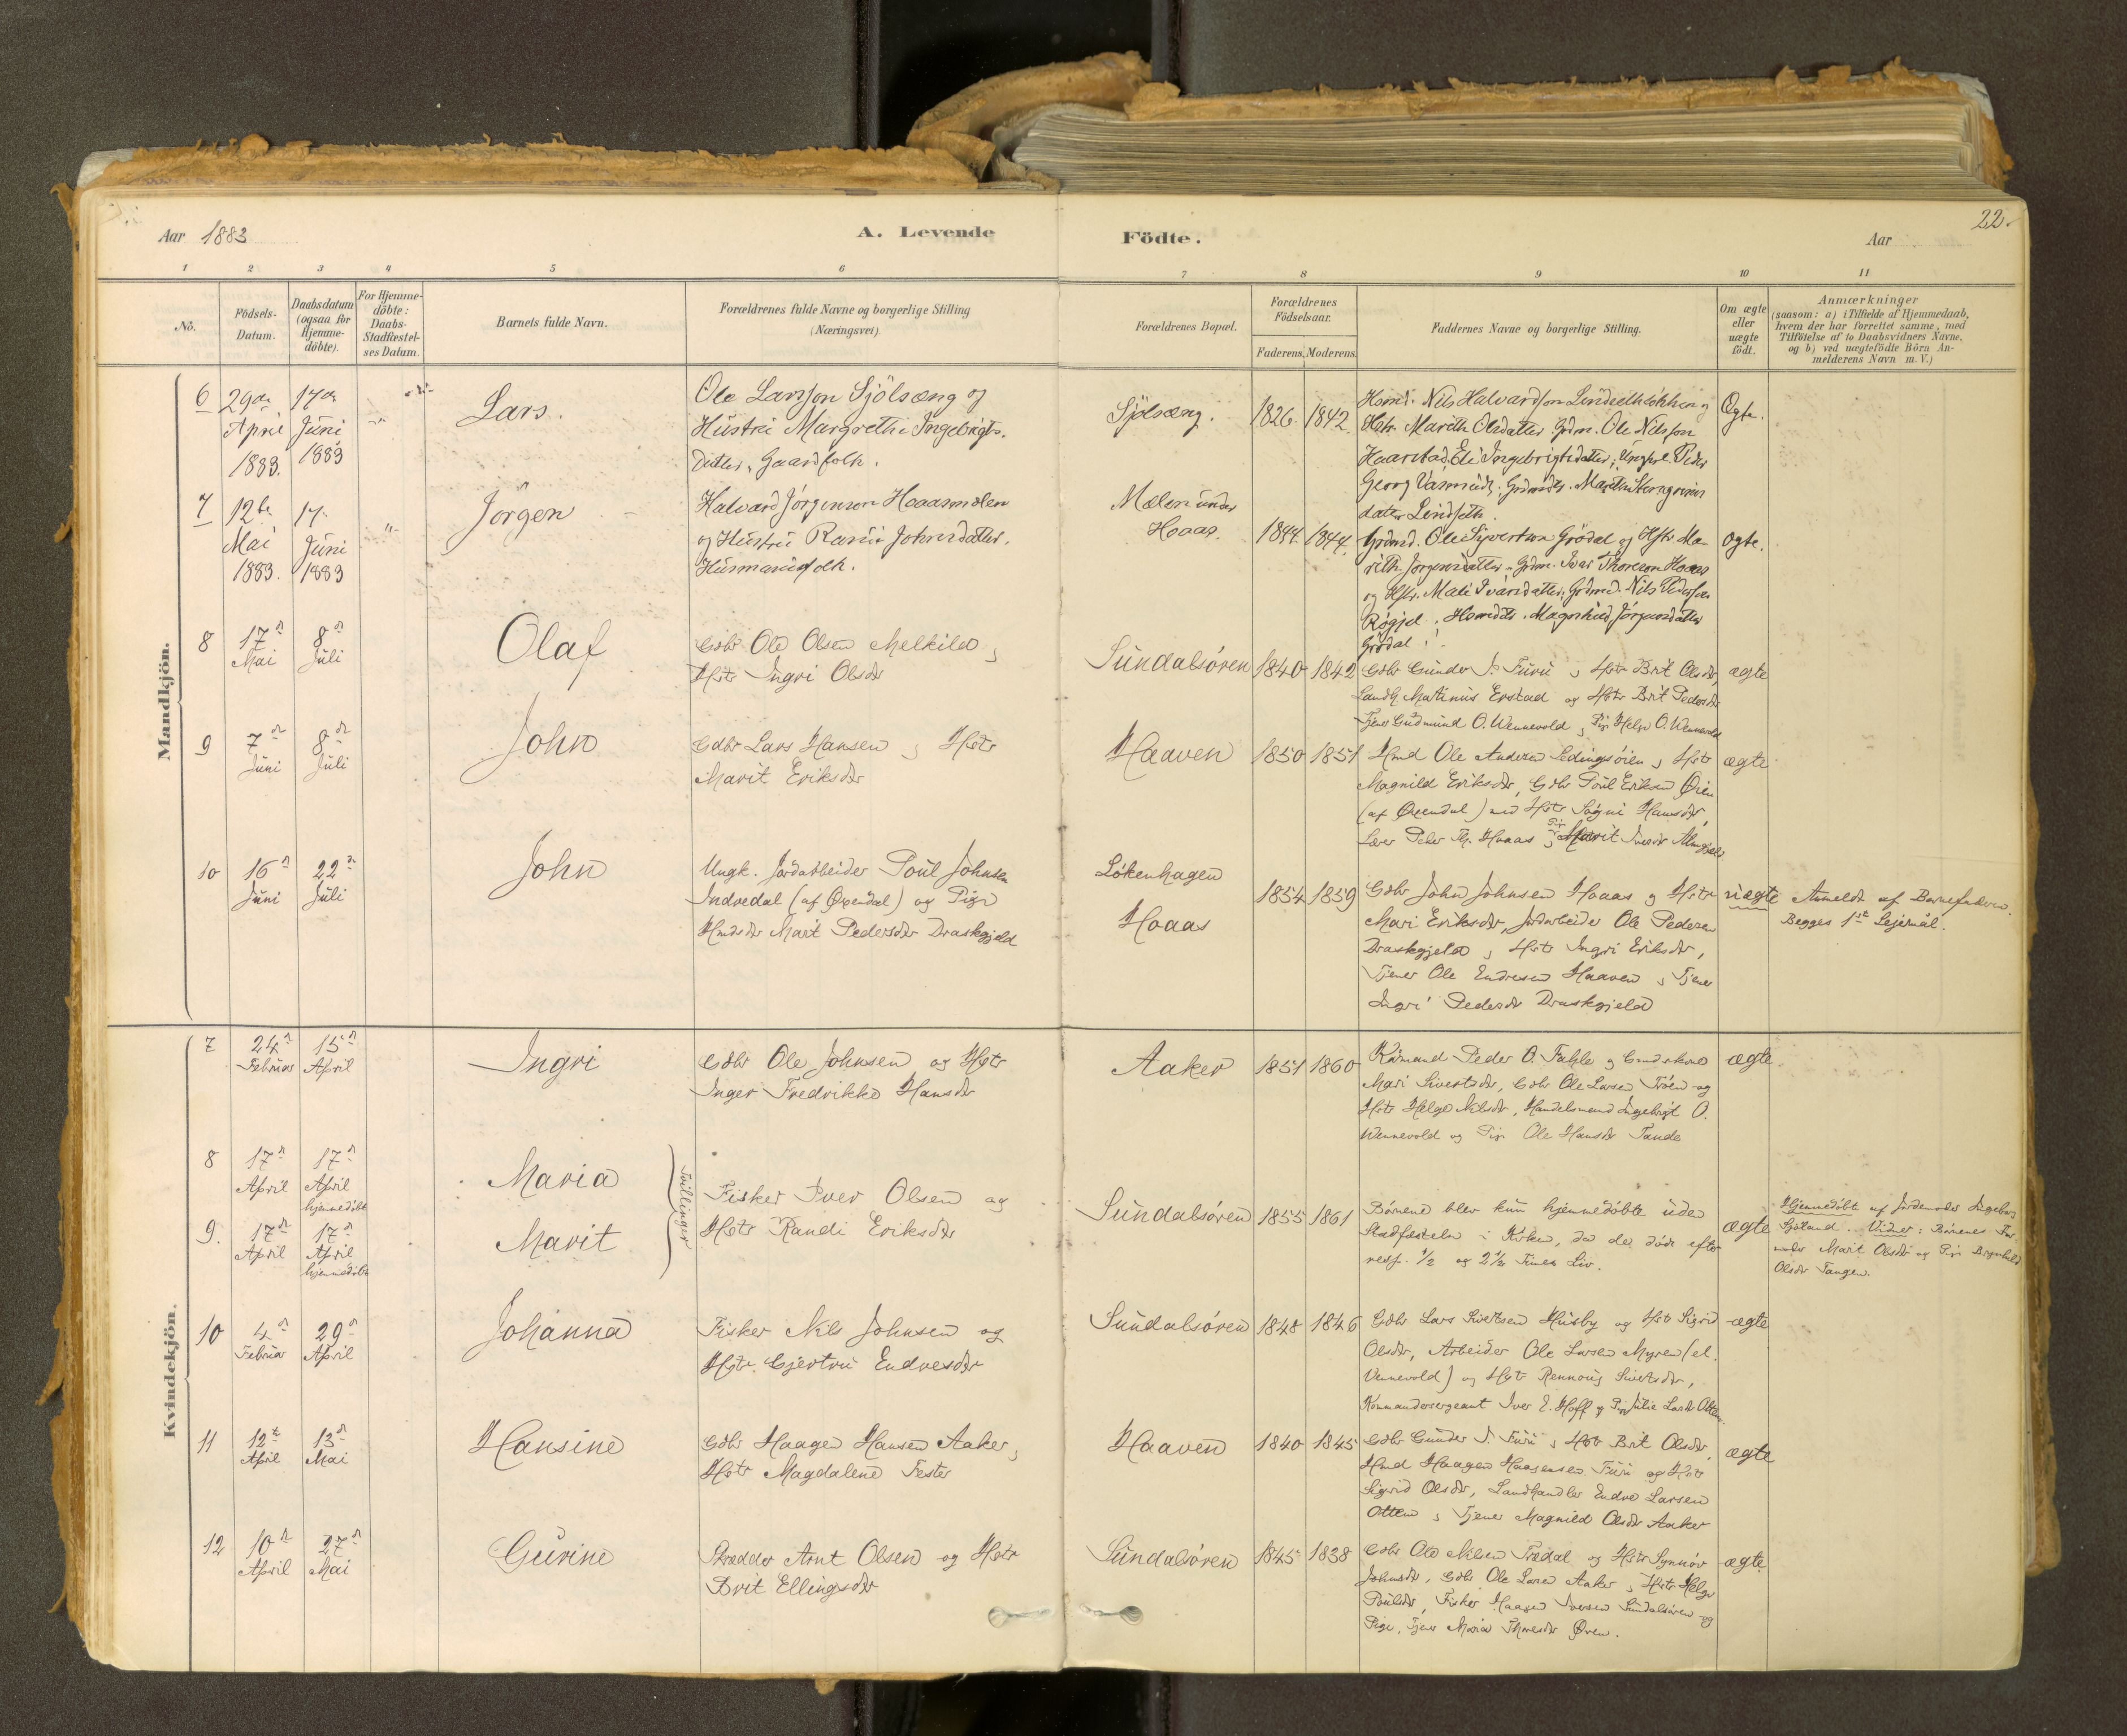 22.
Aar 1883
A. Levende
Födte.
Aar
1 2 3 4 5 6 7 8 9 10 11
No.
Födsels-
Datum.
Daabsdatum
(ogsaa for
Hjemme-
döbte).
For Hjemme-
döbte:
Daabs-
Stadfæstel-
ses Datum.
Barnets fulde Navn.
Forældrenes fulde Navne og borgerlige Stilling
(Næringsvei).
Forældrenes Bopæl.
Forældrenes
Födselsaar.
Faderens. Moderens.
Faddernes Navne og borgerlige Stilling.
Om ægte
eller
uægte
födt.
Anmærkninger
(saasom: a) i Tilfælde af Hjemmedaab,
hvem der har forrettet samme, med
Tilföielse af to Daabsvidners Navne,
og b) ved uægtefödte Börn An-
melderens Navn m.V.)
Mandkjön.
6
29de
April
1883.
17de
Juni
1883
Lars.
Ole Larsson Sjölsæng og
Hustru Margrethe Ingebrigts-
datter, Gaardfolk.
Sjölsæng.
1826. 1842.
Hsmd. Nils Halvardson
Hstr. Marith Olsdatter. Grdm. Ole Nilsson
Haarstad. Eli Ingebrigtsdatter; Ungkrl. Peder
Georg
datter Lindseth.
Ægte.
7
12te
Mai
1883.
17.
Juni
1883
Jörgen
Halvard Jörgenson Haasmælen
og Hustru Rannei Johnsdatter.
Husmandsfolk.
Mælen under
Haas.
1844. 1844.
Grdmd. Ole Sivertson Grödal og Hstr. Ma-
rith Jörgensdatter. Grdm. Ivar Thoreson Haas
og Hstr. Mali Ivarsdatter; Grdmd. Nils Pederson
Hsmdatt. Magnhild Jörgensdatter
Grödal.
ægte.
8
17d
Mai
8d
Juli
Olaf
Gdbr Ole Olsen Melkild
Hstr Ingri Olsdr
Sundalsören
1840 1842
Gdbr Gunder I. Furu og Hstr Brit Olsdr,
Landh. Martinus Erstad og Hstr Brit Pedersdr
Tjener Gudmund O. Wennevold, Pige Helge O. Wennevold
ægte
9
7d
Juni
8d
Juli
John
Gdbr Lars Hansen og Hstr
Marit Eriksdr
Haaven
1850 1851
Hmd Ole Andersen og Hstr
Magnild Eriksdr, Gdbr Poul Eriksen Øien
(af Øxendal) med Hstr Hansdr,
Lærer Peder Haas og Pige Marit
ægte
10
16d
Juni
22d
Juli
John
Ungk. Jordarbeider Poul Johnsen
Indredal (af Øxendal) og Pige
Hmdsdr Marit Pedersdr Draskgjeld
Lökenhagen
Haas
1854 1859
Gdbr John Johnsen Haas og Hstr
Mari Eriksdr, Jordarbeider Ole Pedersen
Draskgjeld og Hstr Ingri Eriksdr,
Tjener Ole Endresen Haaven og Tjener
Ingri Pedersdr Draskgjeld
uægte
Anmeldt af Barnefaderen.
Begges 1ste Lejermål.
Kvindekjön.
7
24d
Februar
15d
April
Ingri
Gdbr Ole Johnsen og Hstr
Inger Fredrikke Hansdr
Aaker
1851 1860
Kårmand Peder O. Fahle og Grdskone
Mari Sivertsdr, Gdbr Ole Larsen Tröen og
Hstr Helge Nilsdr, Handelsmand Ingebrigt O.
Wennevold og Pige Ole Hansdr Tande
ægte
8
17d
April
17d
April
hjemmedöbt
Maria
Tvillinger
Fisker Iver Olsen og
Hstr Randi Eriksdr
Sundalsören
1855 1861
Börnene blev kun hjemmedöbte uden
Stadfæstelse i Kirken, da de döde efter
resp. 1/2 og 2 1/2 Times Liv.
ægte
Hjemmedöbt af Jordemoder Ingeborg
Sjöland. Vidner: Börnenes Far-
moder Marit Olsdr og Pige Brynhild
Olsdr Tangen.
9.
17d
April
17d
April
hjemmedöbt
Marit
10
4d
Februar
29d
April
Johanna
Fisker Nils Johnsen og
Hstr Gjertru Endresdr
Sundalsören
1848 1846
Gdbr Lars Sivertsen Husby og Hstr Sigrid
Olsdr, Arbeider Ole Larsen Myren (el.
Vennevold) og Hstr Rennoug Sivertsdr,
Kommandersergeant Iver E. Hoff og Pige Julie Larsdr Ottem.
ægte
11
12t
April
13d
Mai
Hansine
Gdbr Haagen Hansen Aaker,
Hstr Magdalene Fester
Haaven
1840 1845
Gdbr Gunder I. Furu og Hstr Brit Olsdr,
Hmd Haagen Haagensen Furu og Hstr
Sigrid Olsdr, Landhandler Endre Larsen
Ottem og Tjener Magnild Olsdr Aaker
ægte
12
10d
April
27d
Mai
Gurine
Skrædder Arnt Olsen og Hstr
Brit Ellingsdr
Sundalsören
1845 1838
Gdbr Ole Nilsen Trædal og Hstr Synnöv
Johnsdr, Gdbr Ole Larsen Aaker og Hstr Helge
Poulsdr, Fisker Haagen Iversen Sundalsören og
Pige, Tjener Maria Thoresdr Øren.
ægte